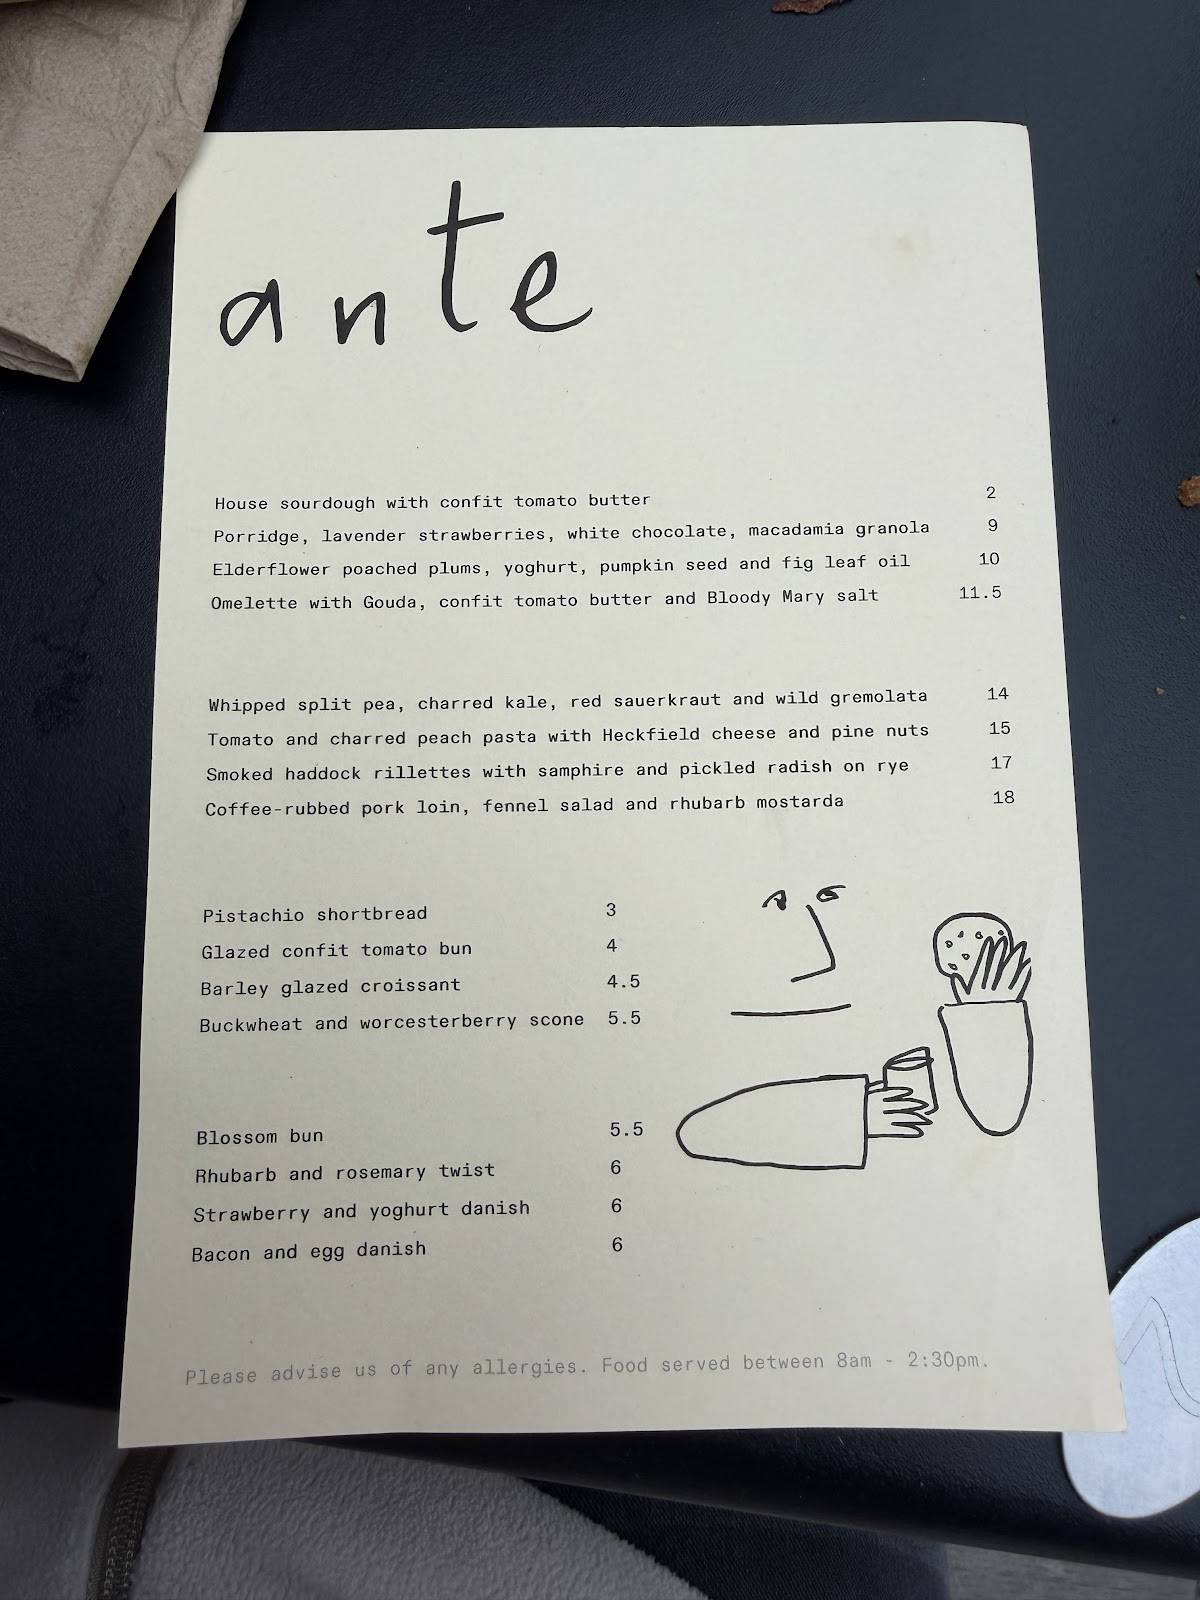 ante
House sourdough with confit tomato butter 2
Porridge, lavender strawberries, white chocolate, macadamia granola 9
Elderflower poached plums, yoghurt, pumpkin seed and fig leaf oil 10
Omelette with Gouda, confit tomato butter and Bloody Mary salt 11.5
Whipped split pea, charred kale, red sauerkraut and wild gremolata 14
Tomato and charred peach pasta with Heckfield cheese and pine nuts 15
Smoked haddock rillettes with samphire and pickled radish on rye 17
Coffee-rubbed pork loin, fennel salad and rhubarb mostarda 18
Pistachio shortbread 3
Glazed confit tomato bun 4
Barley glazed croissant 4.5
Buckwheat and worcesterberry scone 5.5
Blossom bun 5.5
Rhubarb and rosemary twist 6
Strawberry and yoghurt danish 6
Bacon and egg danish 6
Please advise us of any allergies. Food served between 8am - 2:30pm.